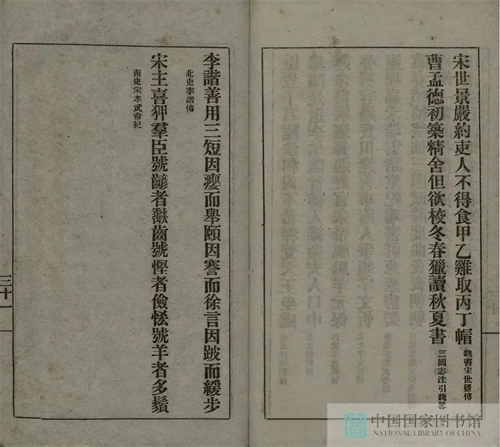 宋世景嚴約吏人不得食甲乙雞取丙丁帽 魏書宋世景傳
曹孟德初築精舍但欲校冬春獵讀秋夏書 三國志注引魏畧
李諧善用三短因癭而舉頤因謇而徐言因跛而緩步
北史李諧傳
宋主喜狎羣臣號齴者齴齒號慳者儉愘號羊者多鬚
南史宋孝武帝紀
三十一
中国国家图书馆
NATIONAL LIBRARY OF CHINA